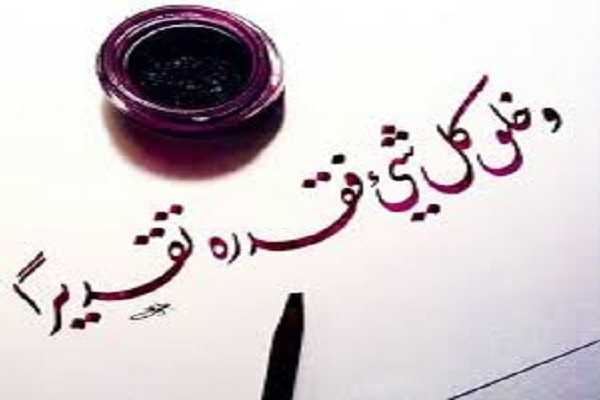 وخلق كل شئ فقدره تقديراً